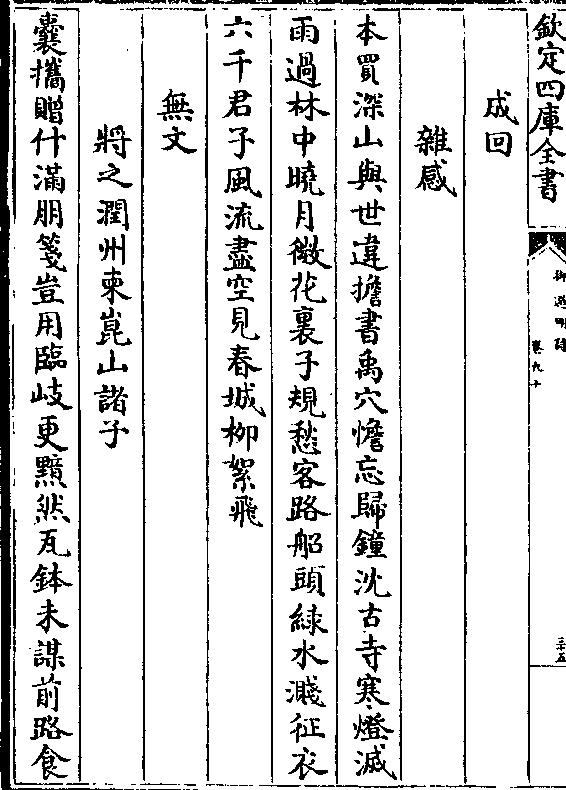 欽定四庫全書
御選明詩
卷九十
三十五
成回
雜感
本買深山與世違擔書禹穴憺忘歸鐘沈古寺寒燈滅
雨過林中曉月微花裏子規愁客路船頭綠水濺征衣
六千君子風流盡空見春城柳絮飛
無文
將之潤州柬崑山諸子
囊攜贈什滿朋箋豈用臨岐更黯然瓦鉢未謀前路食